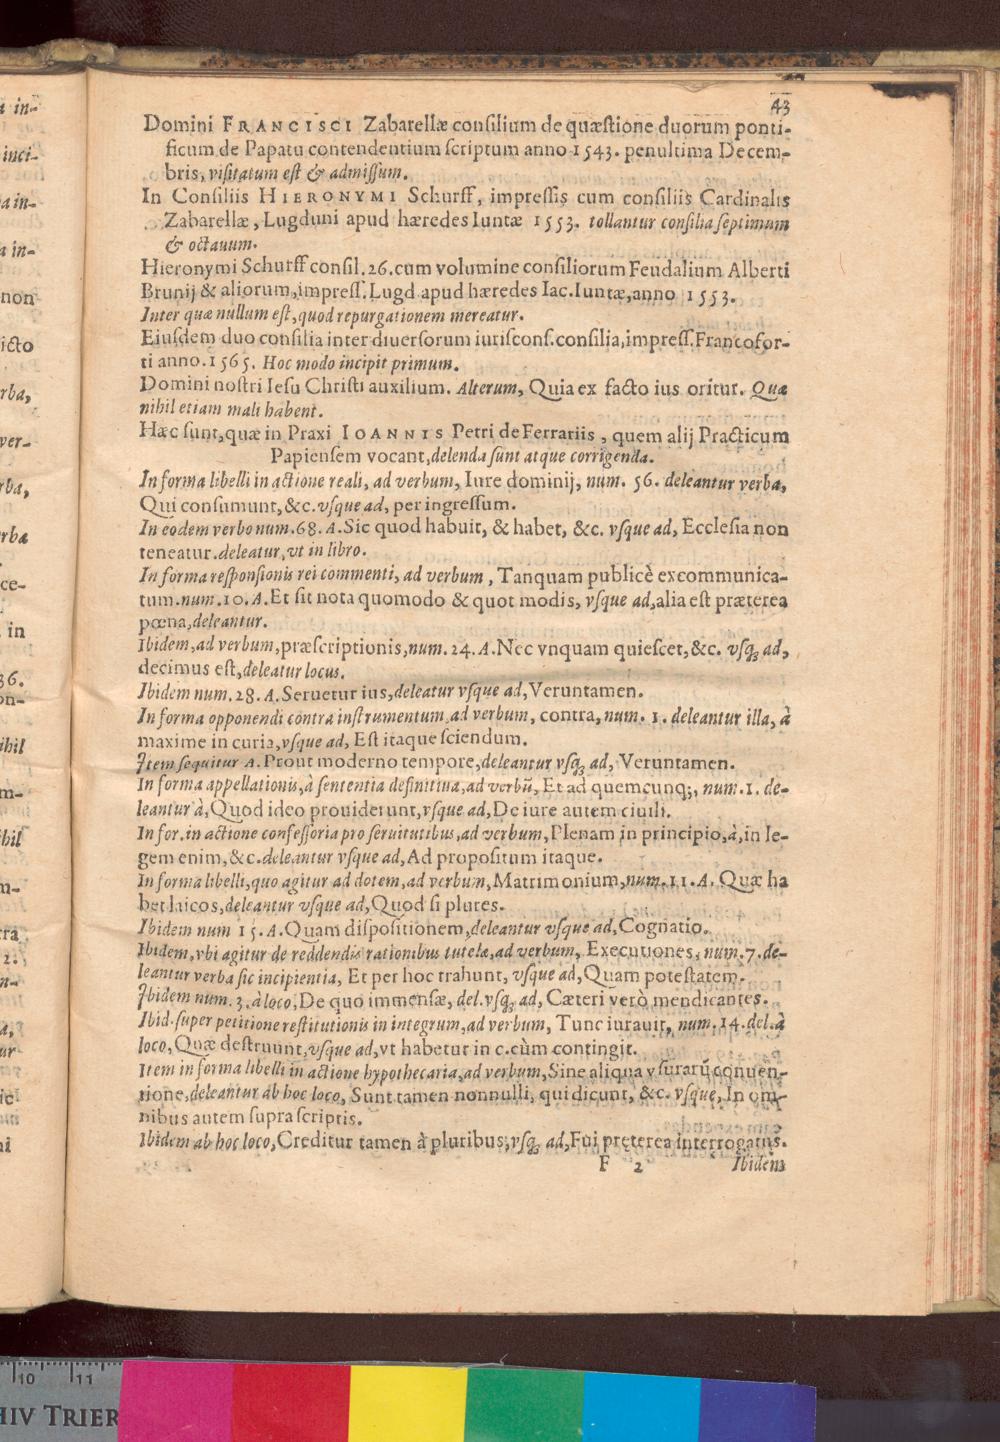 43
Domini FRANCISCI Zabarellæ consilium de quæstione duorum ponti-
ficum de Papatu contendentium scriptum anno 1543. penultima Decem-
bris, visitatum est & admissum.
In Consiliis HIERONYMI Schurff, impressis cum consiliis Cardinalis
Zabarellæ, Lugduni apud hæredes Iuntæ 1553. tollantur consilia septimum
& octauum.
Hieronymi Schurff consil. 26. cum volumine consiliorum Feudalium Alberti
Brunij & aliorum, impress. Lugd apud hæredes Iac. Iuntæ, anno 1553.
Inter quæ nullum est, quod repurgationem mereatur.
Eiusdem duo consilia inter diuersorum iurisconf. consilia, impress. Francofor-
ti anno. 1565. Hoc modo incipit primum.
Domini nostri Iesu Christi auxilium. Alterum, Quia ex facto ius oritur. Quæ
nihil etiam mali habent.
Hæc sunt, quæ in Praxi IOANNIS Petri de Ferrariis, quem alij Practicum
Papiensem vocant, delenda sunt atque corrigenda.
In forma libelli in actione reali, ad verbum, Iure dominij, num. 56. deleantur verba,
Qui consumunt, &c. vsque ad, per ingressum.
In eodem verbo num. 68. A. Sic quod habuit, & habet, &c. vsque ad, Ecclesia non
teneatur. deleatur, vt in libro.
In forma responsionis rei commenti, ad verbum, Tanquam publicè excommunica-
tum. num. 10. A. Et sit nota quomodo & quot modis, vsque ad, alia est præterea
pœna, deleantur.
Ibidem, ad verbum, præscriptionis, num. 24. A. Nec vnquam quiescet, &c. vsq; ad,
decimus est, deleatur locus.
Ibidem num. 28. A. Seruetur ius, deleatur vsque ad, Veruntamen.
In forma opponendi contra instrumentum, ad verbum, contra, num. 1. deleantur illa, à
maxime in curia, vsque ad, Est itaque sciendum.
Item sequitur A. Prout moderno tempore, deleantur vsq; ad, Veruntamen.
In forma appellationis, à sententia definitiua, ad verbũ, Et ad quemcunq;, num. 1. de-
leantur à, Quod ideo prouiderunt, vsque ad, De iure autem ciuili.
In for. in actione confessoria pro seruitutibus, ad verbum, Plenam in principio, à, in le-
gem enim, &c. deleantur vsque ad, Ad propositum itaque.
In forma libelli, quo agitur ad dotem, ad verbum, Matrimonium, num. 11. A. Quæ ha
bet laicos, deleantur vsque ad, Quod si plures.
Ibidem num 15. A. Quam dispositionem, deleantur vsque ad, Cognatio.
Ibidem, vbi agitur de reddendis rationibus tutelæ, ad verbum, Executiones, num. 7. de-
leantur verba sic incipientia, Et per hoc trahunt, vsque ad, Quam potestatem.
Ibidem num. 3. à loco, De quo immensæ, del. vsq; ad, Cæteri verò mendicantes.
Ibid. super petitione restitutionis in integrum, ad verbum, Tunc iurauit, num. 14. del. à
loco, Quæ destruunt, vsque ad, vt habetur in c. cùm contingit.
Item in forma libelli in actione hypothecaria, ad verbum, Sine aliqua vsurarũ conuen-
tione, deleantur ab hoc loco, Sunt tamen nonnulli, qui dicunt, &c. vsque, In om-
nibus autem supra scriptis.
Ibidem ab hoc loco, Creditur tamen à pluribus, vsq; ad, Fui pręterea interrogatus.
F 2 Ibidem
10 11
HIV TRIER